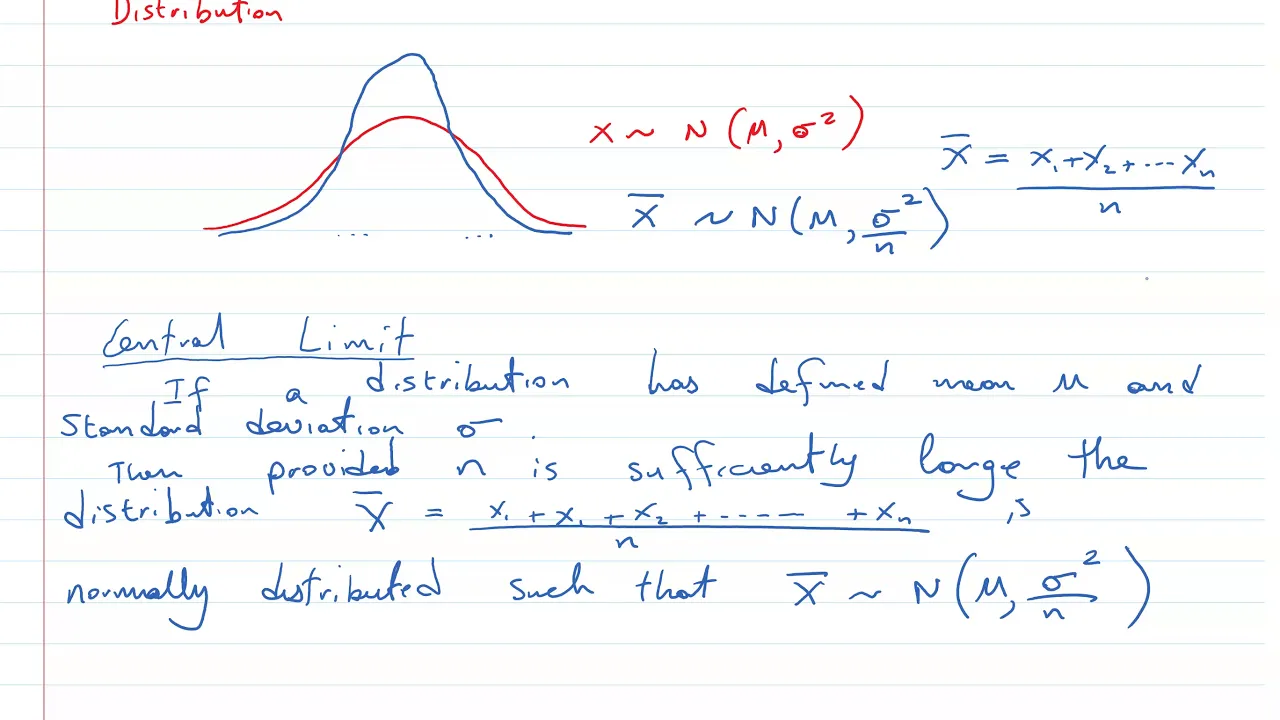 Distribution
X ~ N (μ, σ²)
X̄ = X₁ + X₂ + ... Xₙ / n
X̄ ~ N (μ, σ²/n)
Central Limit
If a distribution has defined mean μ and
standard deviation σ
Then provided n is sufficiently large the
distribution X̄ = X₁ + X₁ + X₂ + ----- + Xₙ / n is
normally distributed such that X̄ ~ N (μ, σ²/n)